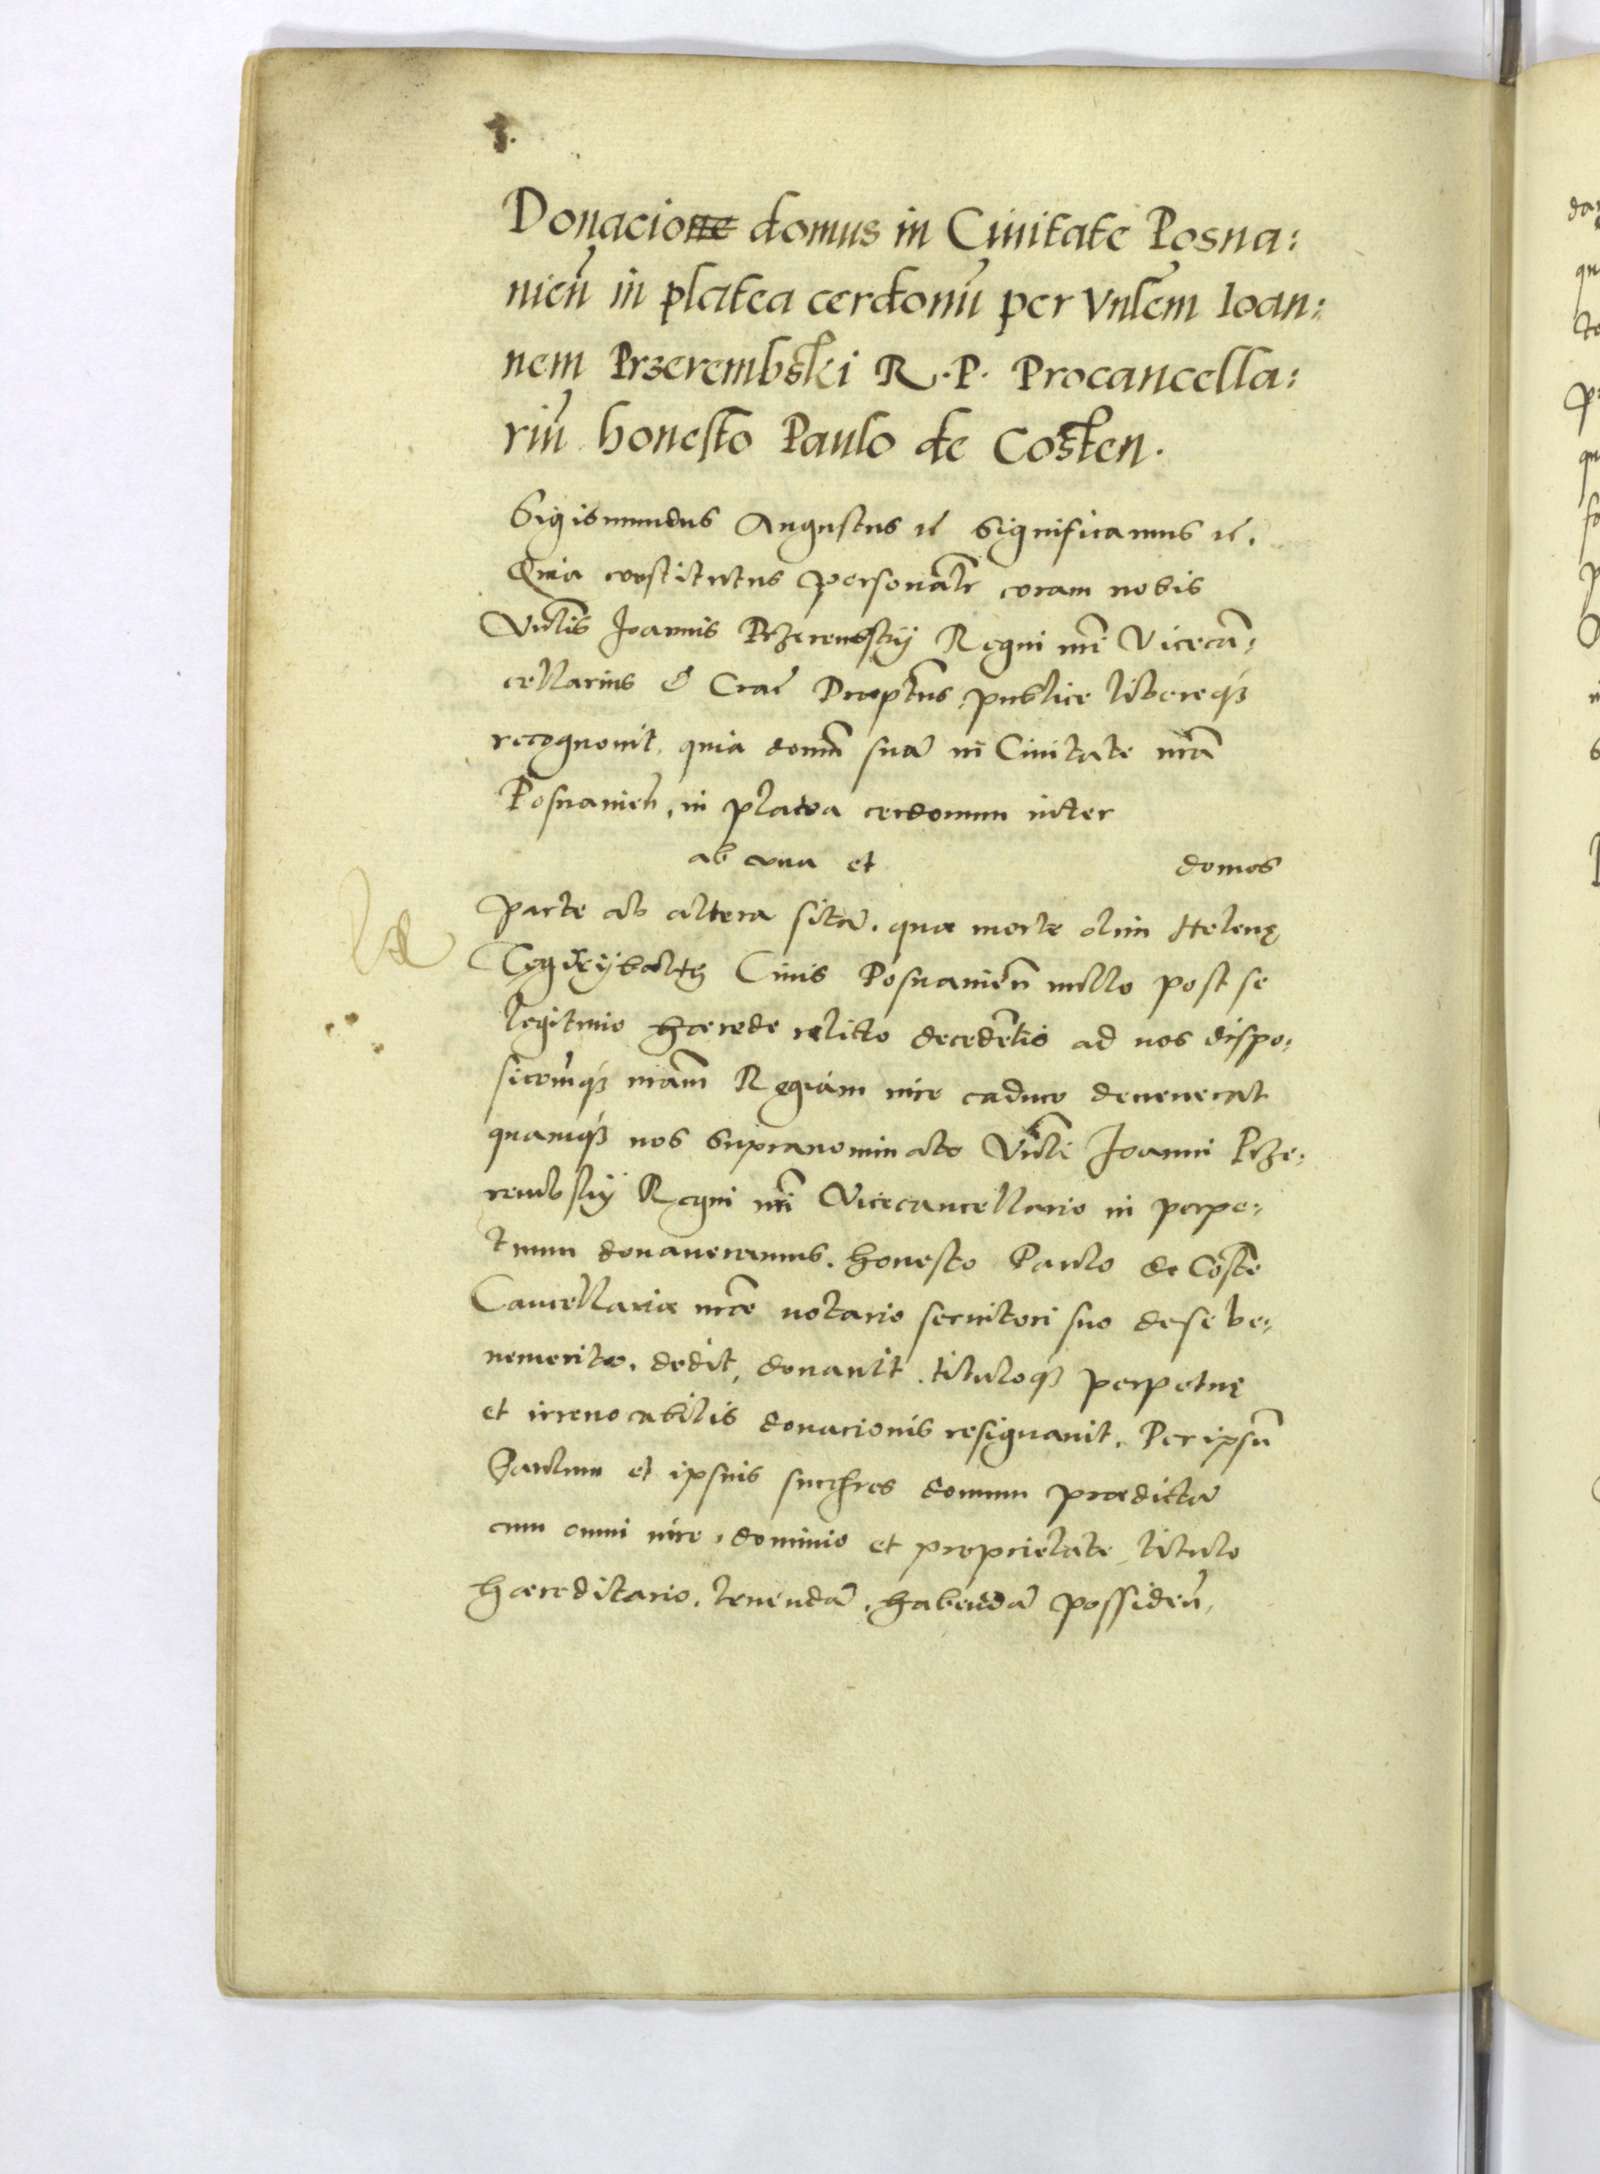 3.
Donacione domus in Ciuitate Posna:
nieñ in platea cerdonũ per Vnlem Ioan:
nem Przerembski R. P. Procancella:
riũ honesto Paulo de Costen.
Sigismundus Augustus &c Significamus &c.
Quia constitutus personalr coram nobis
Vnlis Joannis Przerembskÿ Regni nri Vicecã:
cellarius & Crac Praeptus publice libereq3
recognouit, quia domũ suã in Ciuitate nrã
Posnanień, in platea cerdonum inter
ab una et domos
parte ab altera sitã. quae morte olim Helenę
Ciuis Posnanień nullo post se
legitimo haerede relicto decedẽtis ad nos dispo:
sicõmq3 nram Regiam iure caduco deuenerat
quamq3 nos supranominato Vnli Joanni Prze:
rembskÿ Regni nri Vicecancellario in perpe:
tuum donaueramus. honesto Paulo de Coste
Cancellariae nrae notario seruitori suo de se be:
nemerito. dedit, donauit, tituloq3 perpetuę
et irreuocabilis donacionis resignauit. Per ipsũ
Paulum et ipsius succres domum praedictã
cum omni iure, dominio et proprietate, titulo
haereditario. tenendã. habendã possideñ,